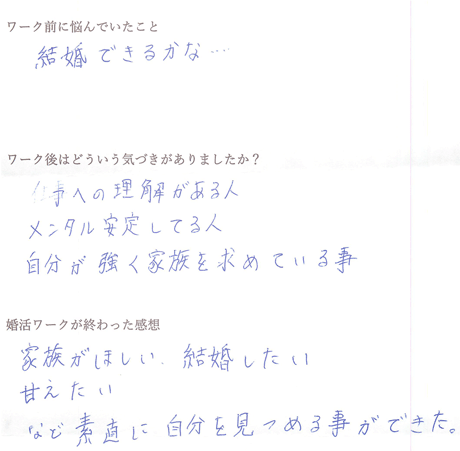 ワーク前に悩んでいたこと
結婚できるかな…
ワーク後はどういう気づきがありましたか？
仕事への理解がある人
メンタル安定してる人
自分が強く家族を求めている事
婚活ワークが終わった感想
家族がほしい、結婚したい
甘えたい
など素直に自分を見つめる事ができた。